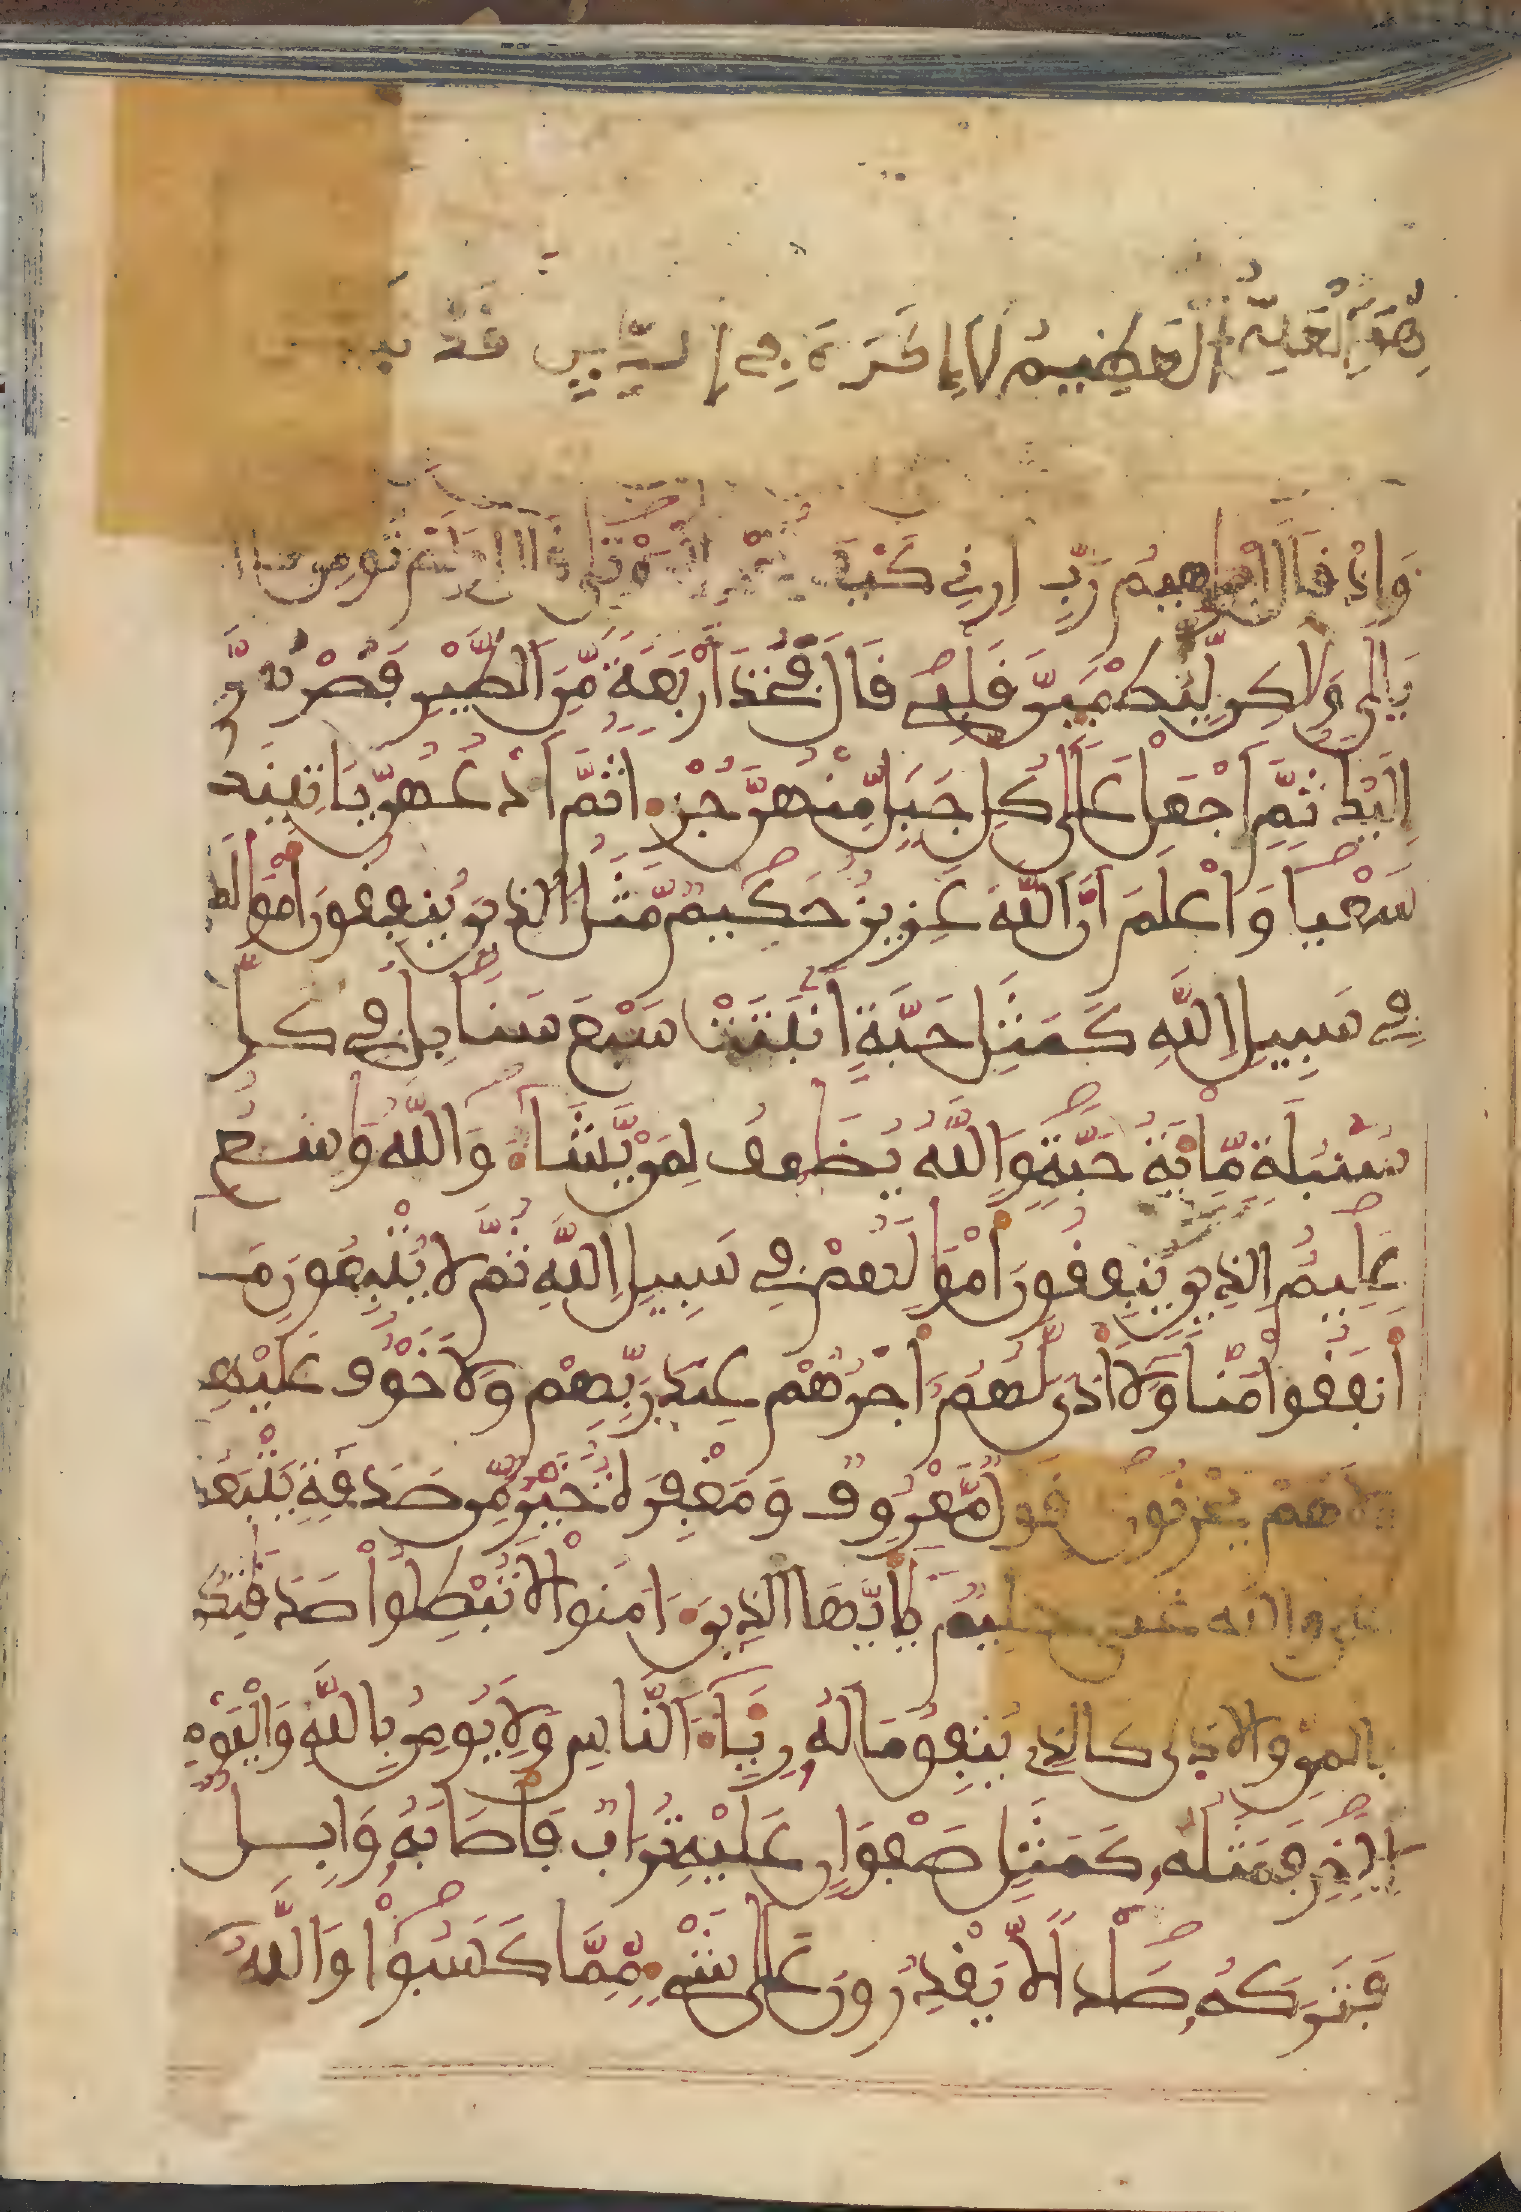 هُوَ اَ۬لْعَلِيُّ اُ۬لْعَظِيمُ لَا إِكْرَاهَ فِے اِ۬لدِّينِ قَد تَّبَيَّنَ
وَإِذْ قَالَ إِبْرَٰهِيمُ رَبِّ أَرِنِے كَيْفَ تُحْيِ اِ۬لْمَوْتَىٰ قَالَ أَوَلَمْ تُومِن قَالَ
بَلَىٰ وَلَٰكِن لِّيَطْمَئِنَّ قَلْبِے قَالَ فَخُذَ اَرْبَعَةً مِّنَ اَ۬لطَّيْرِ فَصُرْهُنَّ
إِلَيْكَ ثُمَّ اَ۪جْعَلْ عَلَىٰ كُلِّ جَبَلٍ مِّنْهُنَّ جُزْءاً ثُمَّ اَ۟دْعُهُنَّ يَاتِينَكَ
سَعْياً وَاعْلَمَ اَنَّ اَ۬للَّهَ عَزِيزٌ حَكِيمٌ مَّثَلُ اُ۬لذِينَ يُنفِقُونَ أَمْوَٰلَهُمْ
فِے سَبِيلِ اِ۬للَّهِ كَمَثَلِ حَبَّةٍ اَنۢبَتَتْ سَبْعَ سَنَابِلَ فِے كُلِّ
سُنۢبُلَةٍ مِّاْئَةُ حَبَّةٍ وَاللَّهُ يُضَٰعِفُ لِمَنْ يَّشَآءُ وَاللَّهُ وَٰسِعٌ
عَلِيمٌ اِ۬لذِينَ يُنفِقُونَ أَمْوَٰلَهُمْ فِے سَبِيلِ اِ۬للَّهِ ثُمَّ لَا يُتْبِعُونَ مَا
أَنفَقُواْ مَنّاً وَلَا أَذىً لَّهُمُ أَجْرُهُمْ عِندَ رَبِّهِمْ وَلَا خَوْفٌ عَلَيْهِمْ
وَلَا هُمْ يَحْزَنُونَ قَوْلٌ مَّعْرُوفٌ وَمَغْفِرَةٌ خَيْرٌ مِّن صَدَقَةٍ يَتْبَعُهَا
أَذىً وَاللَّهُ غَنِيٌّ حَلِيمٌ يَٰأَيُّهَا اَ۬لذِينَ ءَامَنُواْ لَا تُبْطِلُواْ صَدَقَٰتِكُم
بِالْمَنِّ وَالَاذَىٰ كَالذِے يُنفِقُ مَالَهُۥ رِئَآءَ اَ۬لنَّاسِ وَلَا يُومِنُ بِاللَّهِ وَالْيَوْمِ
اِ۬لَاخِرِ فَمَثَلُهُۥ كَمَثَلِ صَفْوَانٍ عَلَيْهِ تُرَابٌ فَأَصَابَهُۥ وَابِلٌ
فَتَرَكَهُۥ صَلْداً لَّا يَقْدِرُونَ عَلَىٰ شَےْءٍ مِّمَّا كَسَبُواْ وَاللَّهُ